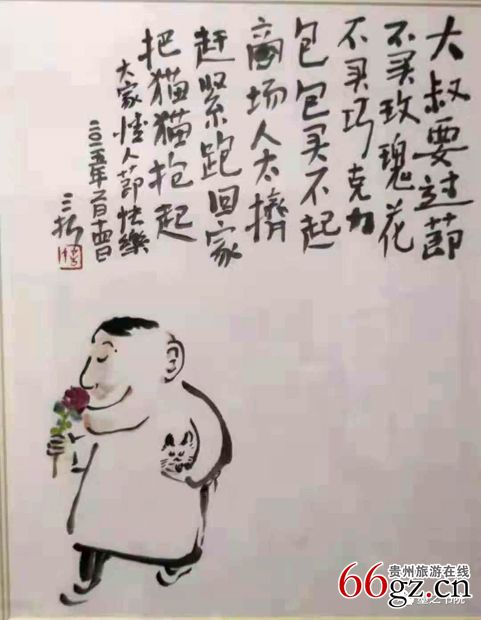 大叔要过節
不买玫瑰花
不买巧克力
包包买不起
商场人太擠
赶緊跑回家
把猫猫抱起
大家情人節快樂
二〇一五年二月十四日
三
贵州旅游在线
66gz.cn